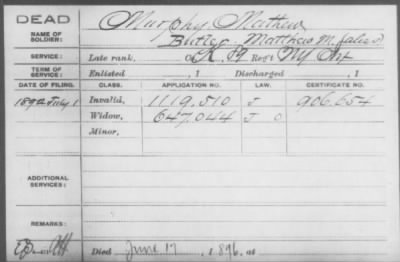 DEAD
NAME OF SOLDIER: Murphy Mathew
Butler, Matthew M. (alias)
SERVICE: Late rank, Co. K, 89 Reg't NY Inf
TERM OF SERVICE: Enlisted , 1 Discharged , 1
DATE OF FILING. CLASS. APPLICATION NO. LAW. CERTIFICATE NO.
1892 July 1 Invalid, 1119.510 J 906.654
Widow, 647.044 J
Minor,
ADDITIONAL SERVICES:
REMARKS:
Died June 17, 1896, at